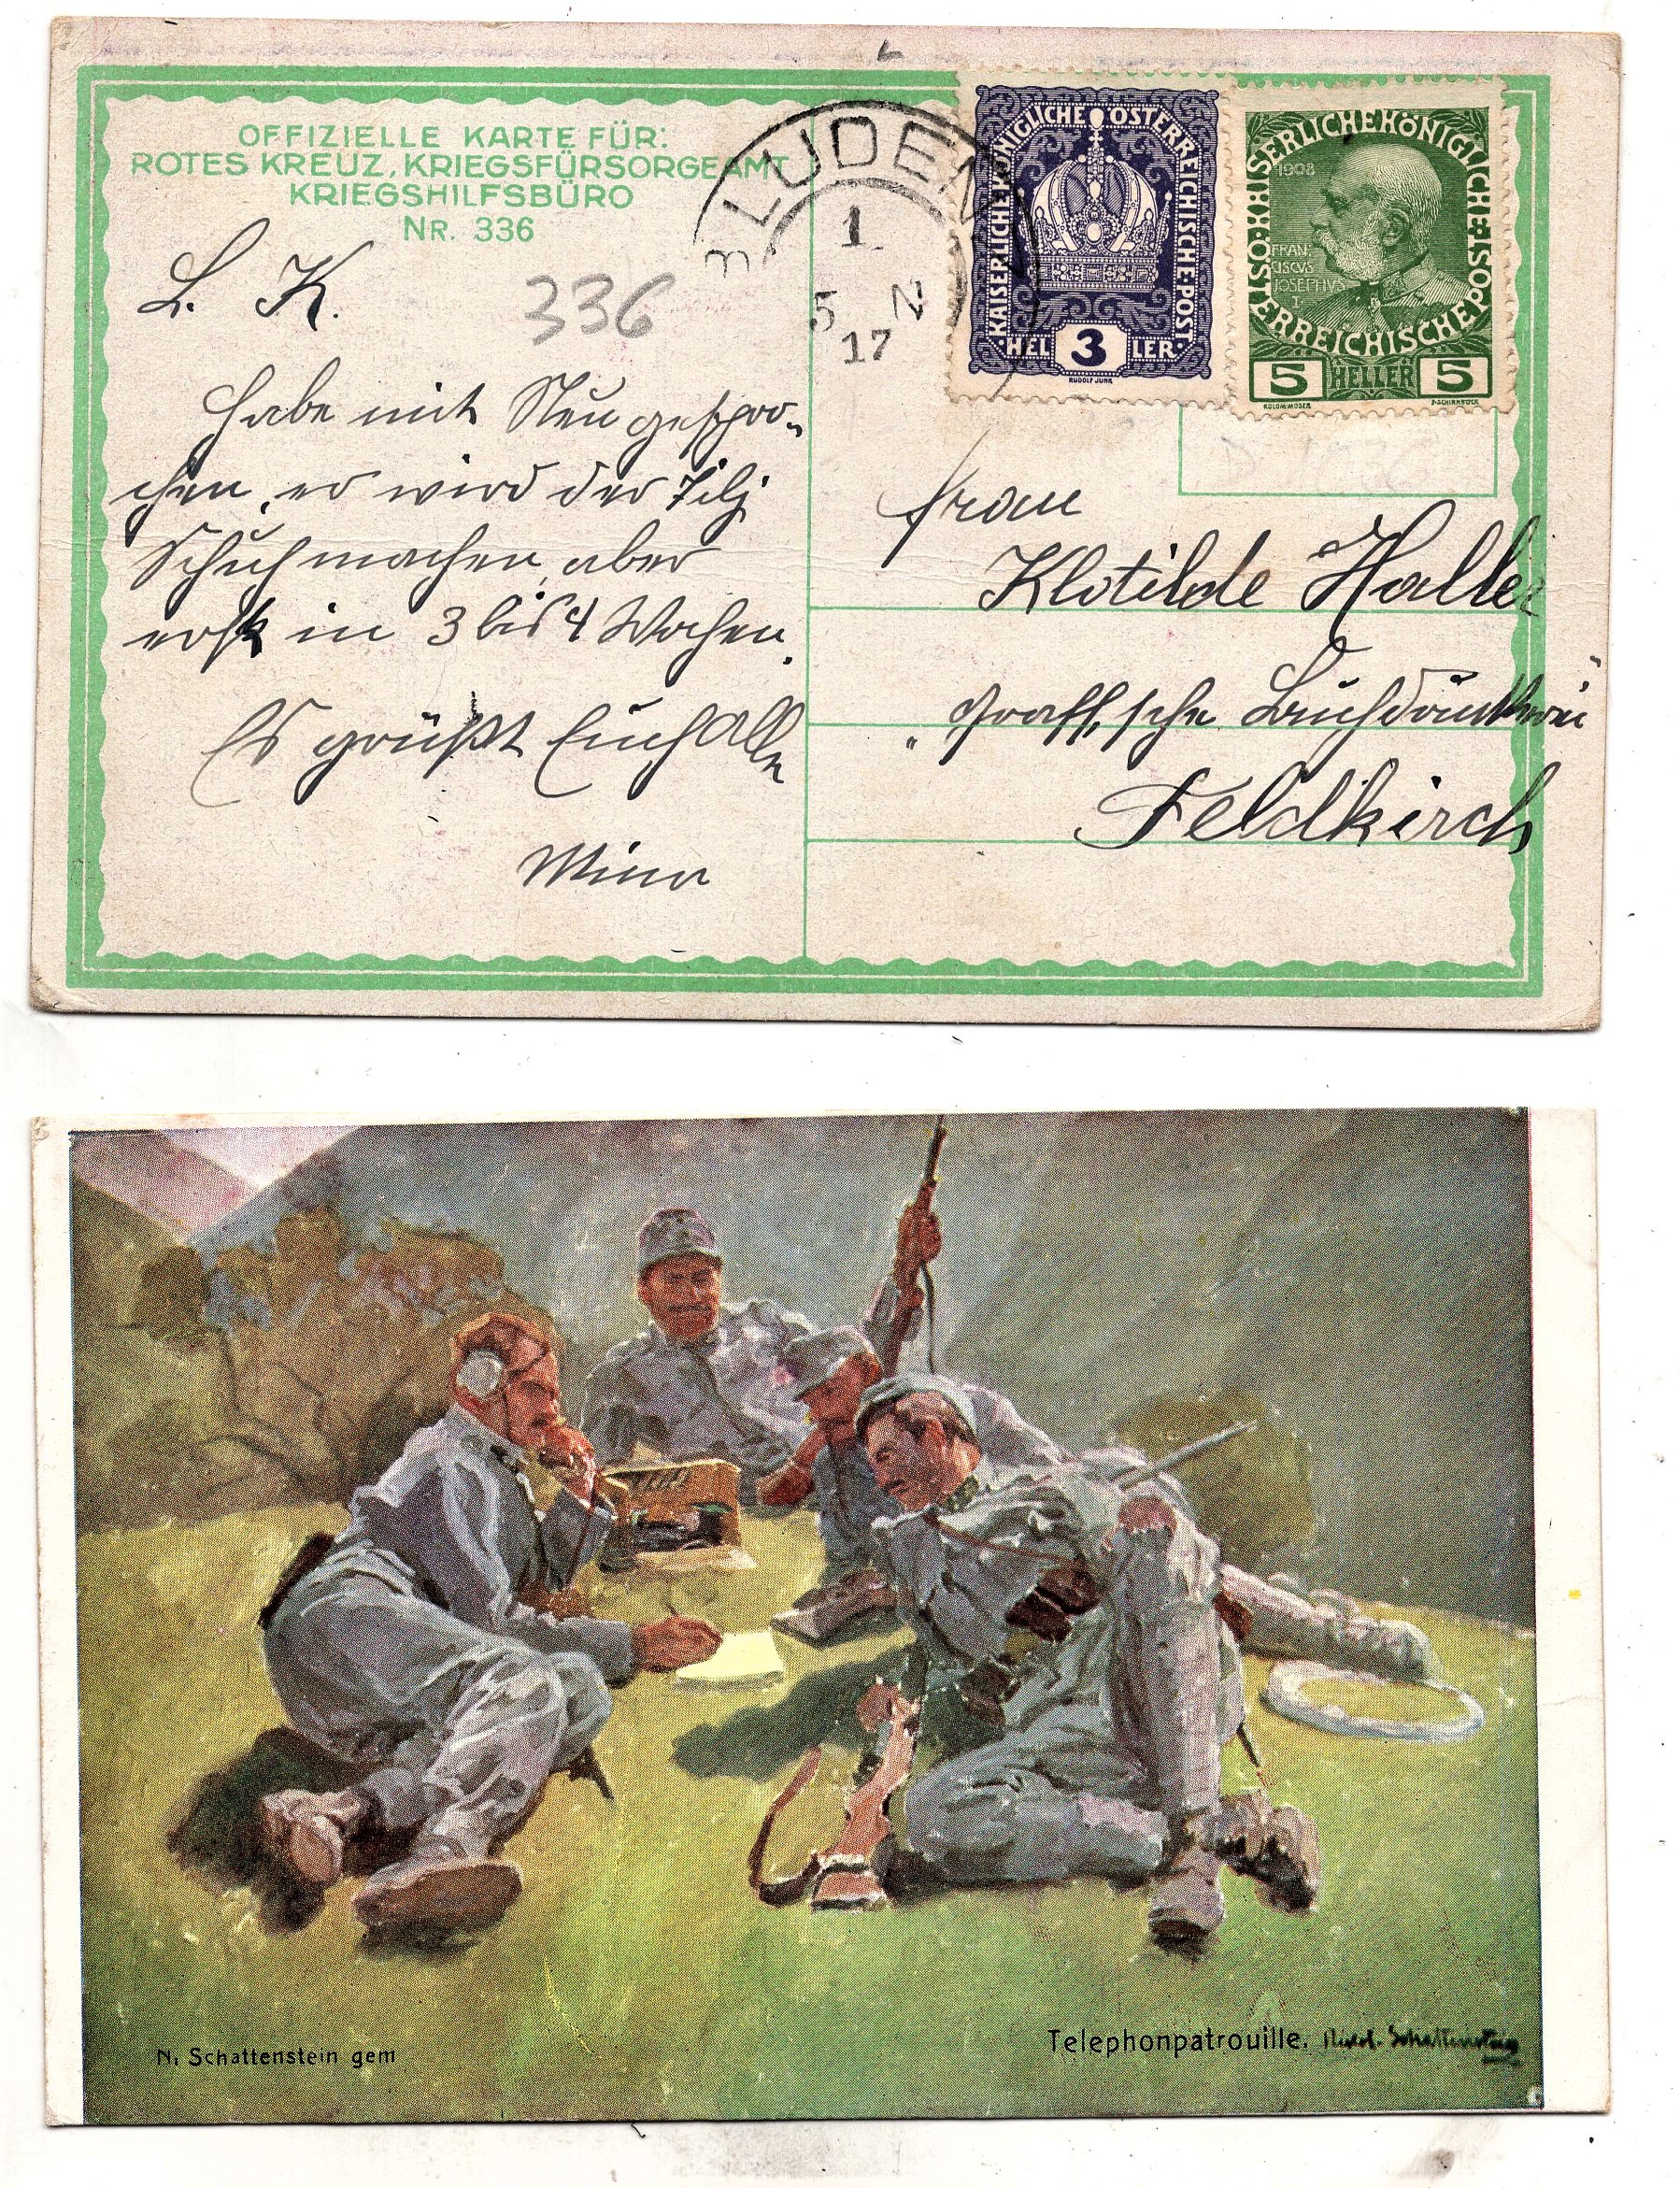 OFFIZIELLE KARTE FÜR:
ROTES KREUZ, KRIEGSFÜRSORGEAMT
KRIEGSHILFSBÜRO
NR. 336
336
L. K.
Habe mit Neu gespro-
chen, er wird der
Schuh machen, aber
erst in 3 bis 4 Wochen.
Es grüßt Euch Alle
Mina
BLUDENZ
1
5 N
17
KAISERLICHE KÖNIGLICHE ÖSTERREICHISCHE POST
HEL 3 LER
RUDOLF JUNK
KAISERLICHE KÖNIGLICHE ÖSTERREICHISCHE POST
1908
FRAN
CISCVS
JOSEPHVS
I
5 HELLER 5
KOLOM.MOSER F.SCHIRNBÖCK
Frau
Klotilde Haller
"Graff'sche Buchdruckerei"
Feldkirch
N. Schattenstein gem
Telephonpatrouille. Nikol. Schattenstein